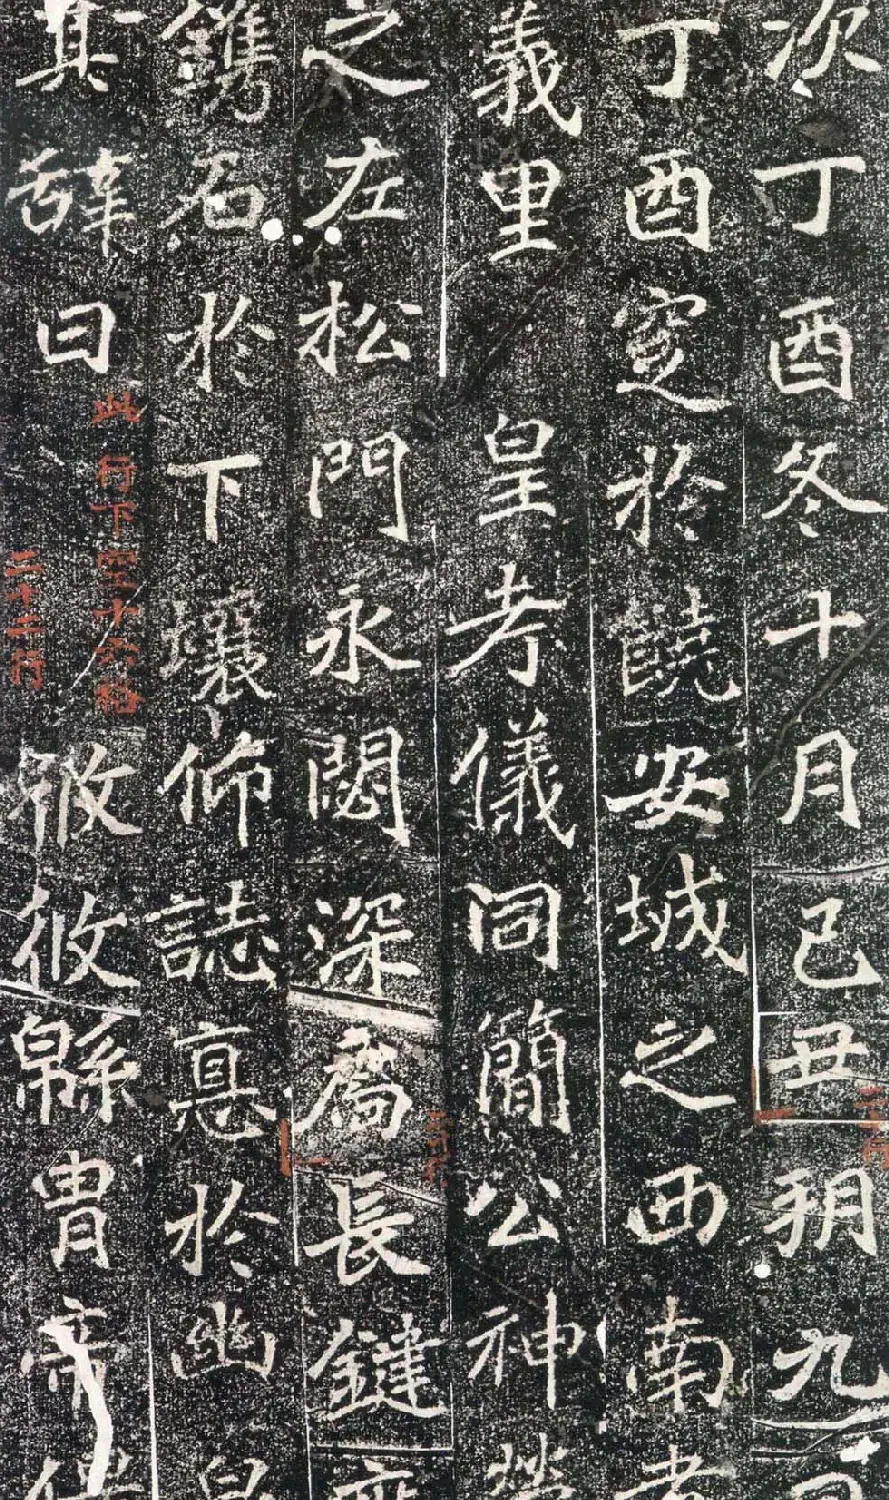 次丁酉冬十月己丑朔九日
丁酉窆於饒安城之西南孝
義里 皇考儀同簡公神塋
之左松門永閟深扃長鍵庶
鐫名於下壤仰誌悳於幽泉
其辭曰 攸攸緜胄帝
此行下空十六格
二十二行